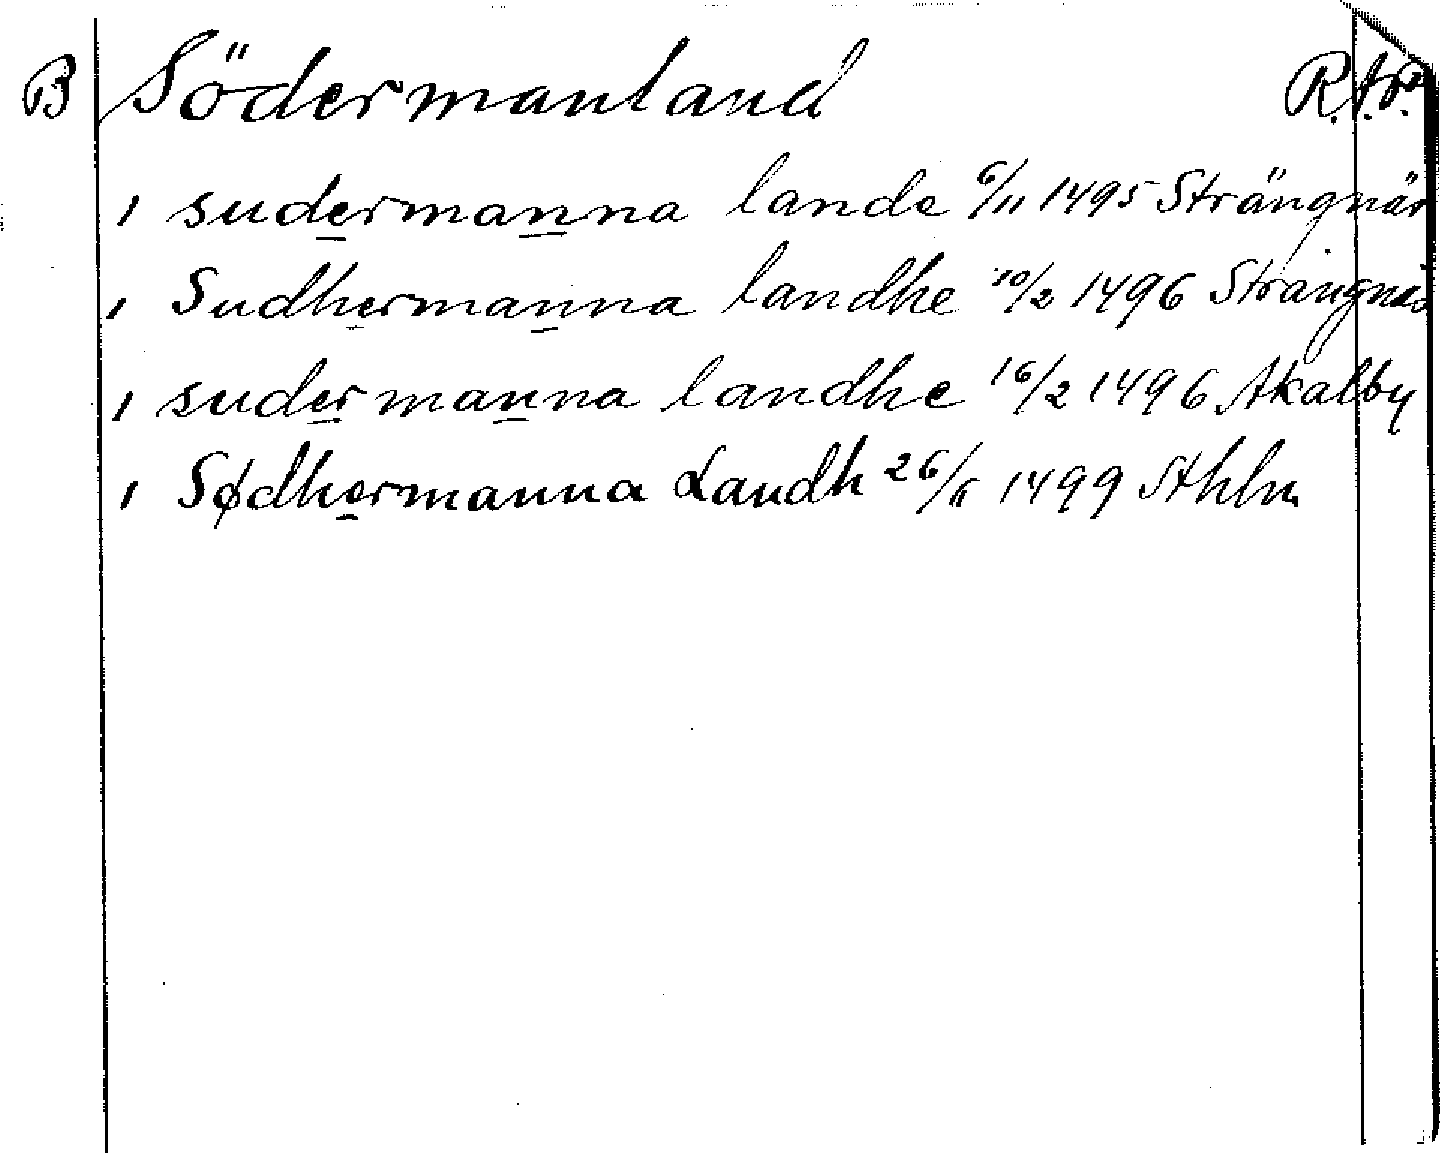 B Södermanland R.A.P.
, sudermanna lande 6/11 1495 Strängnäs
, Sudhermanna landhe 10/2 1496 Strängnäs
, sudermanna landhe 16/2 1496 Akalby
, Sødhermanna Landh 26/11 1499 Sthlm